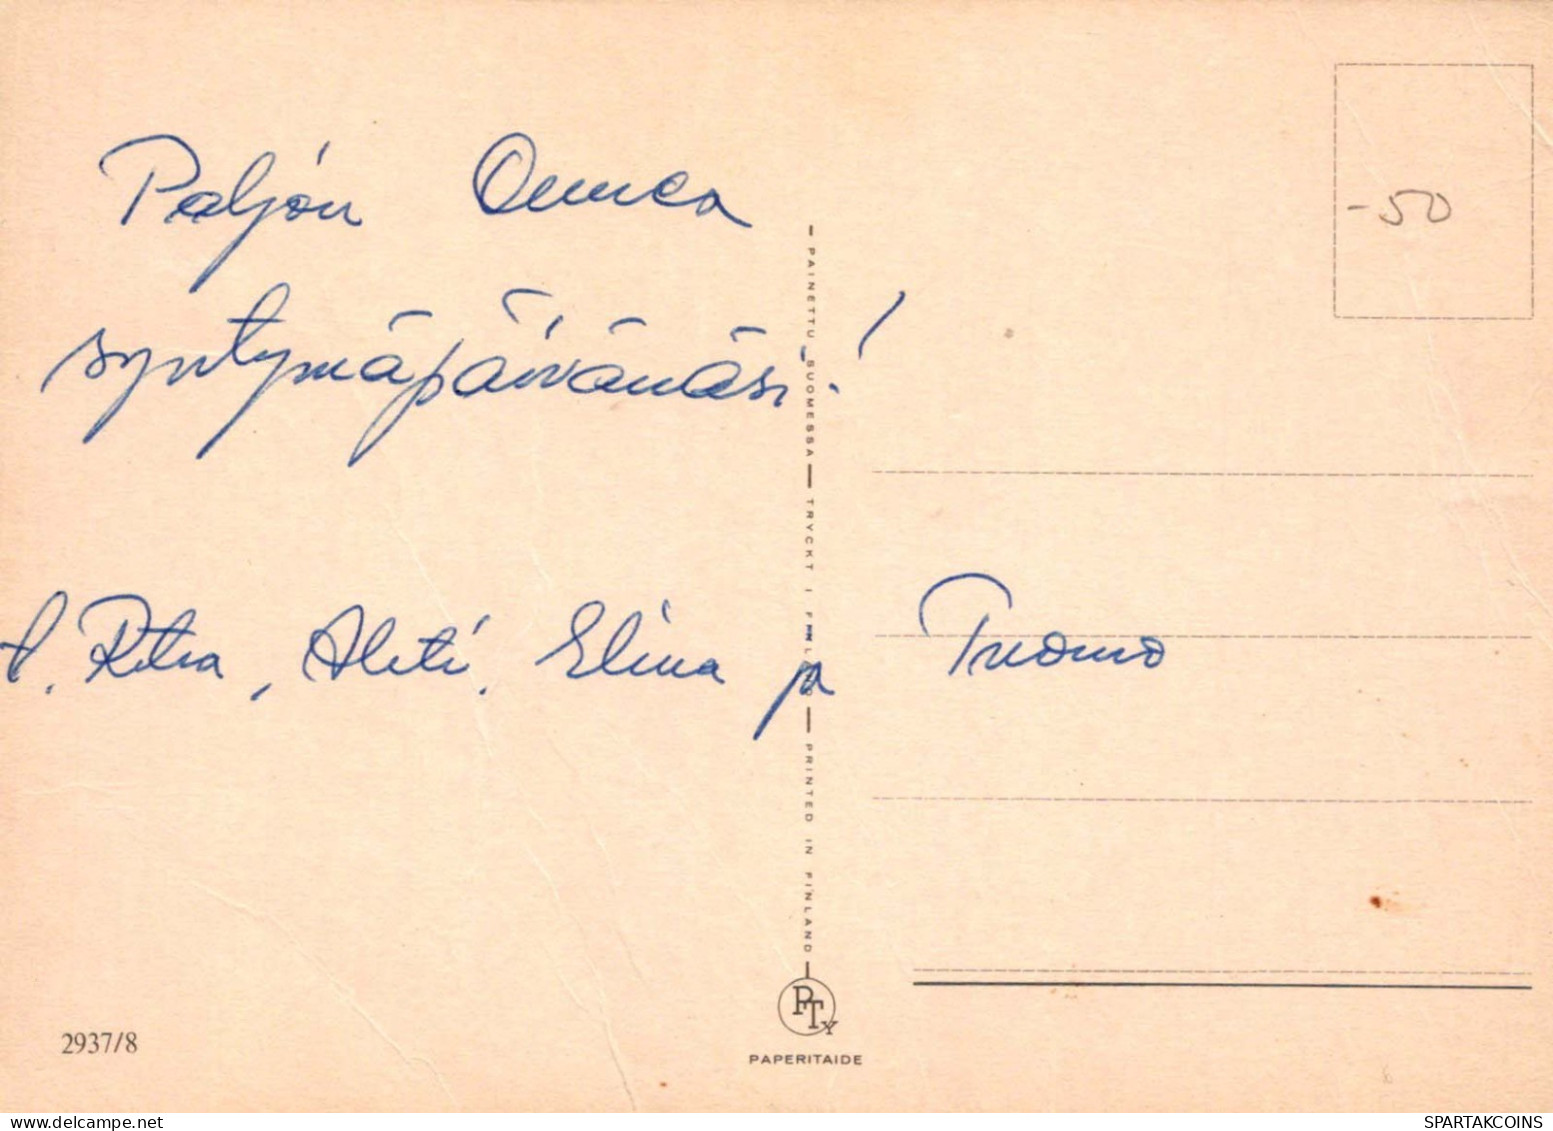 Paljon Onnea
syntymäpäivänäsi!
t. Ritva, Ahti, Elina ja Tuomo
-50
PAINETTU SUOMESSA — TRYCKT I FINLAND — PRINTED IN FINLAND
PTY
PAPERITAIDE
2937/8
delcampe.net
SPARTAKCOINS